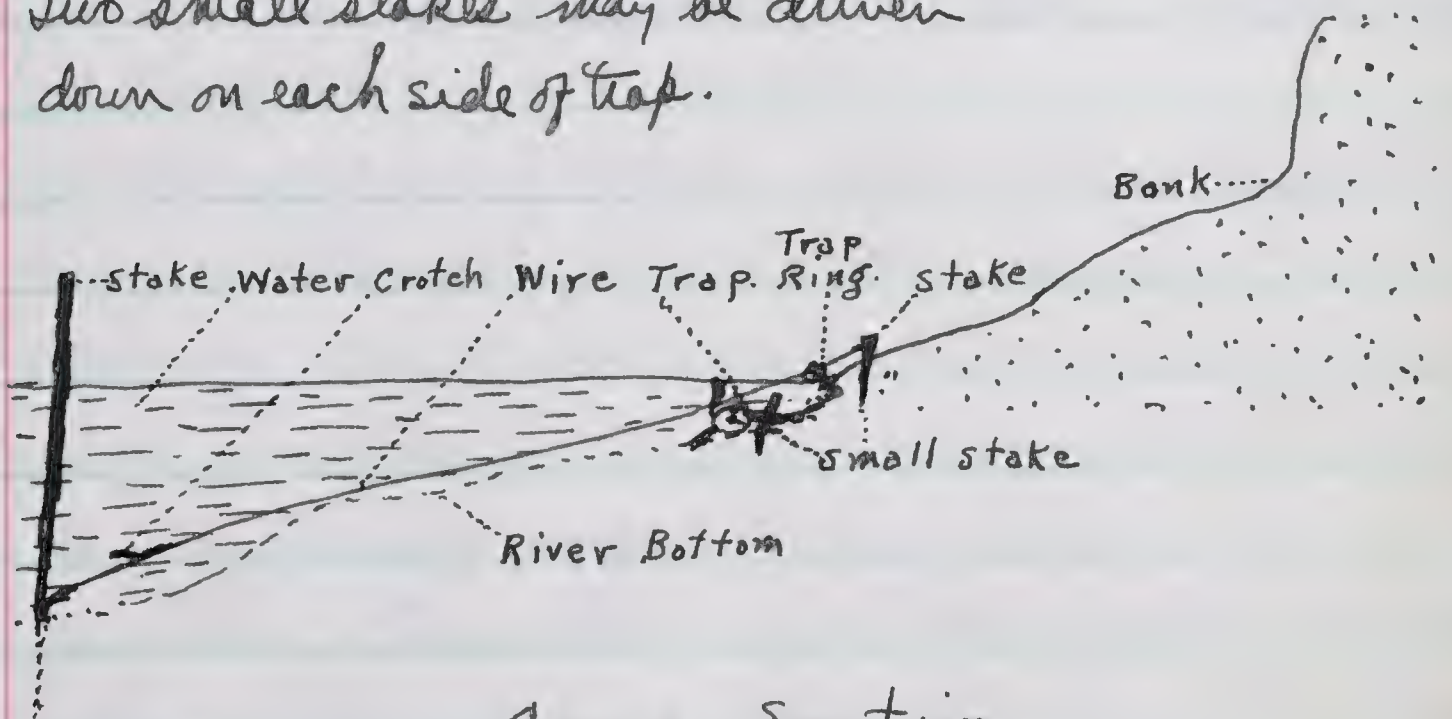 Two small stakes may be driven
down on each side of trap.
Bank
Trap
stake Water Crotch Wire Trap. Ring. stake
small stake
River Bottom